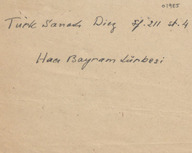 01985
Türk Sanatı Diaz sf. 211 st. 4
Hacı Bayram Türbesi